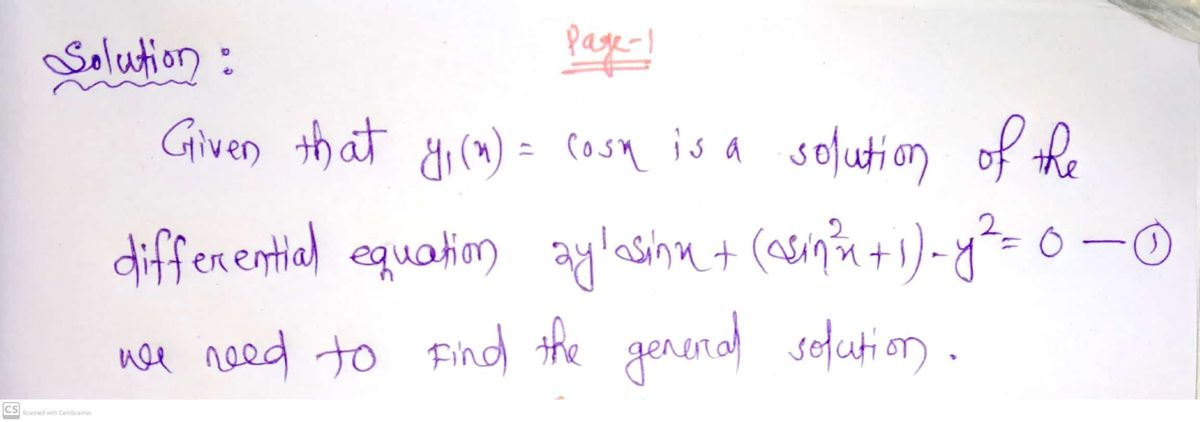 Page-1
Solution :
Given that y₁(x) = cosx is a solution of the
differential equation 2y'sinx + (sin²x+1)-y² = 0 —①
we need to Find the general solution.
CS Scanned with CamScanner